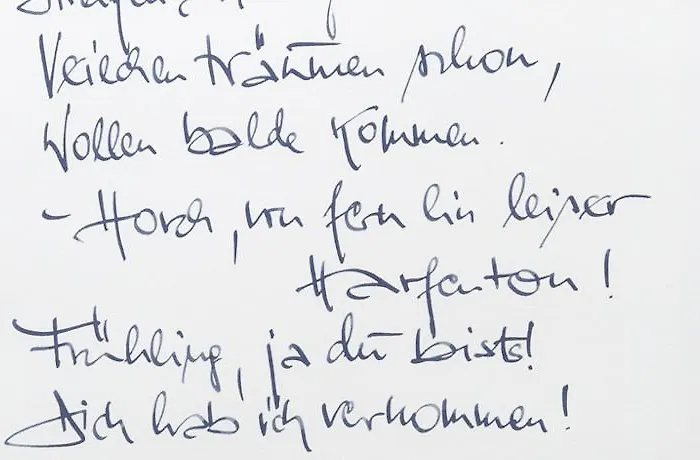 Veilchen träumen schon,
Wollen balde kommen.
- Horch, von fern ein leiser
Harfenton!
Frühling, ja du bists!
Dich hab ich vernommen!